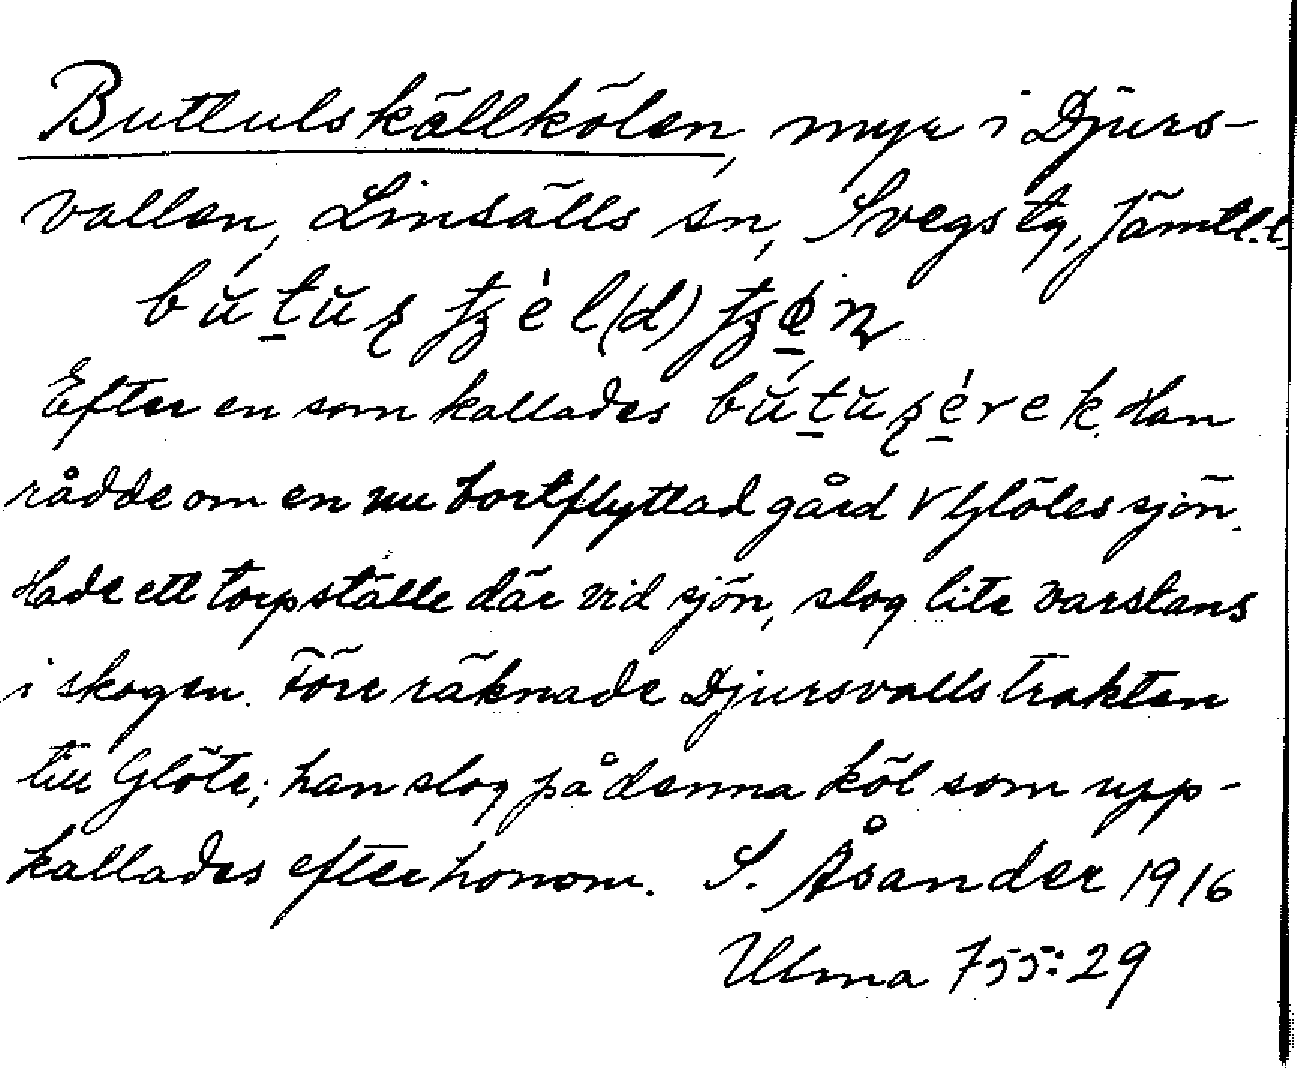 Buttulskällkölen, myr i Djurs-
vallen, Linsälls sn, Svegs tg, Jämtl. l.
Efter en som kallades Han
rådde om en nu bortflyttad gård V Glötessjön.
Hade ett torpställe där vid sjön, slog lite varstans
i skogen. Förr räknade Djursvallstrakten
till Glöte; han slog på denna köl som upp-
kallades efter honom. S. Åsander 1916
Ulma 755:29